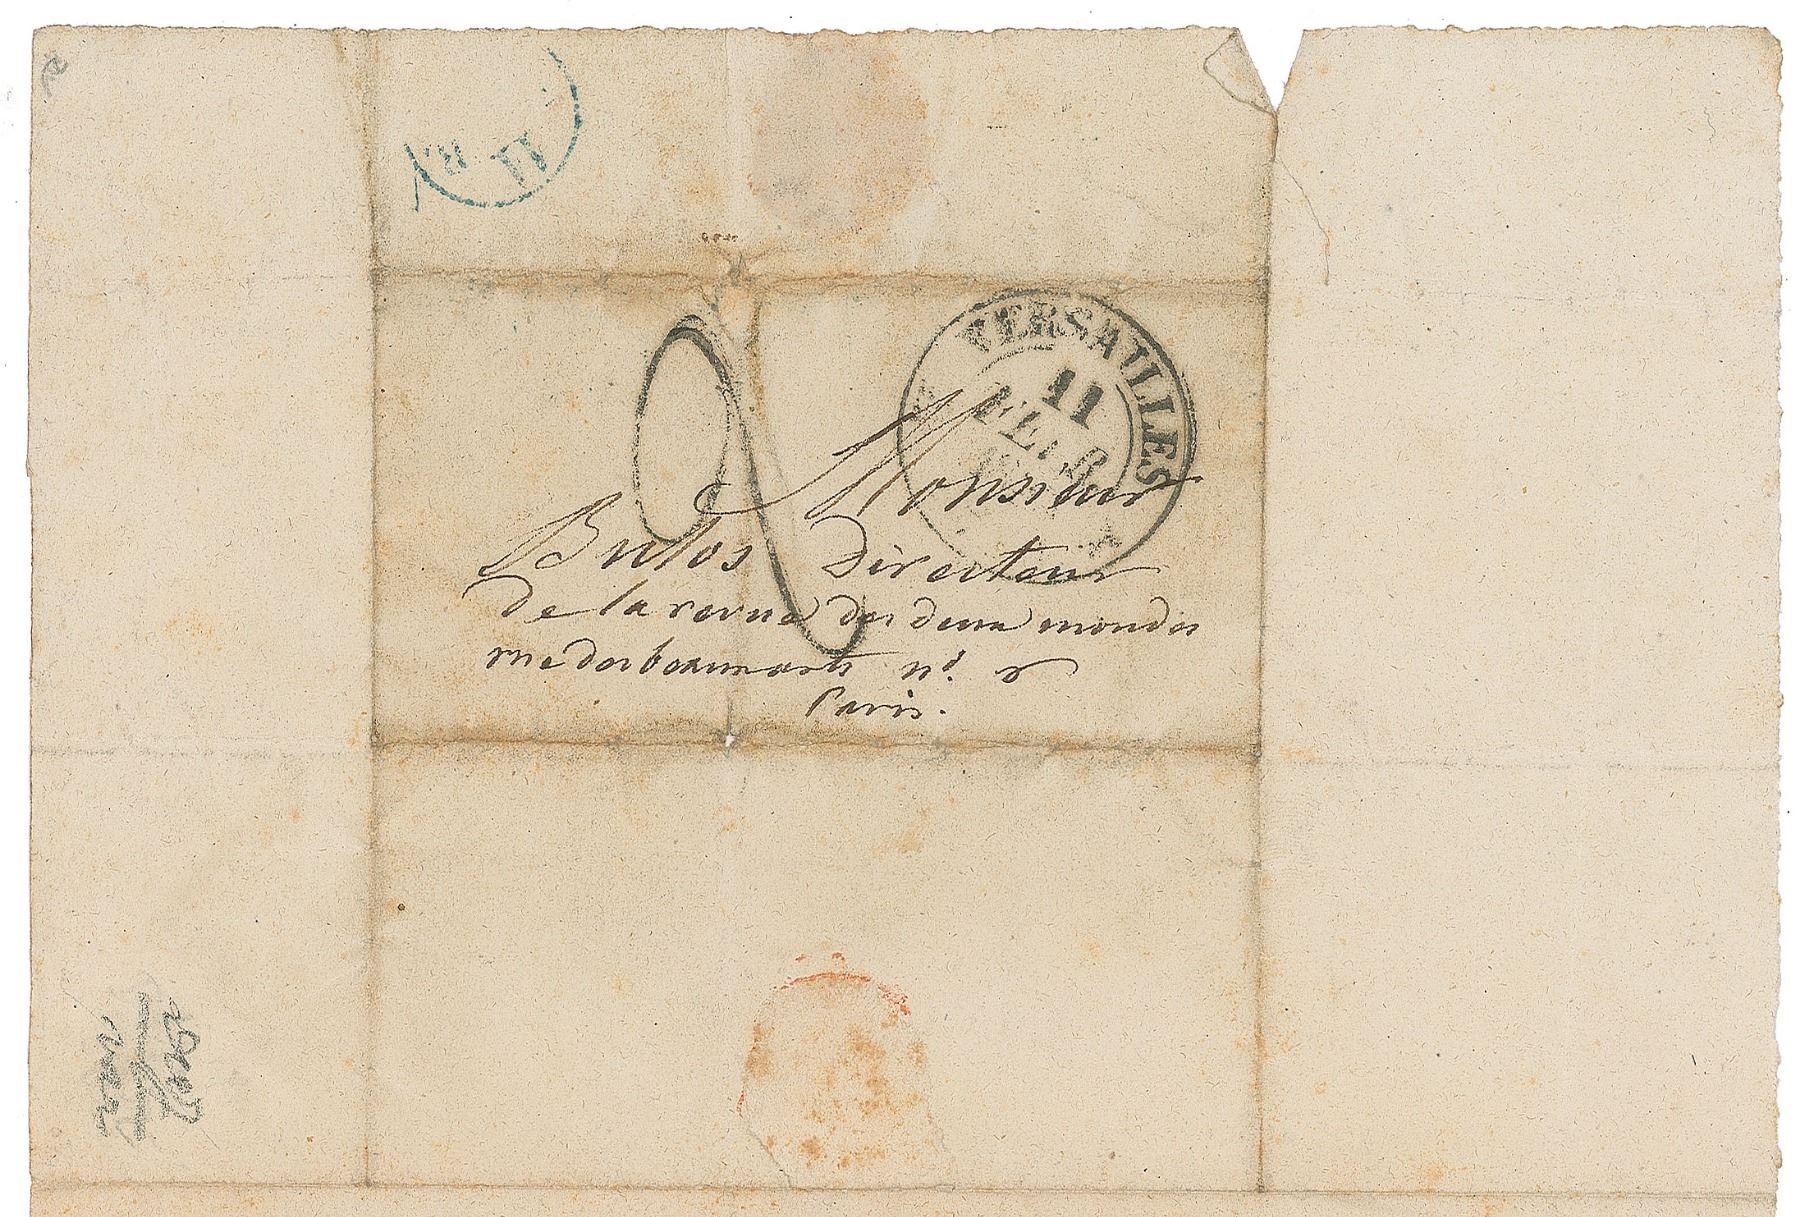 11
VERSAILLES
11
FEVR
2
Monsieur
Bulos Directeur
de la revue des deux mondes
rue des beaux arts n°.
Paris.